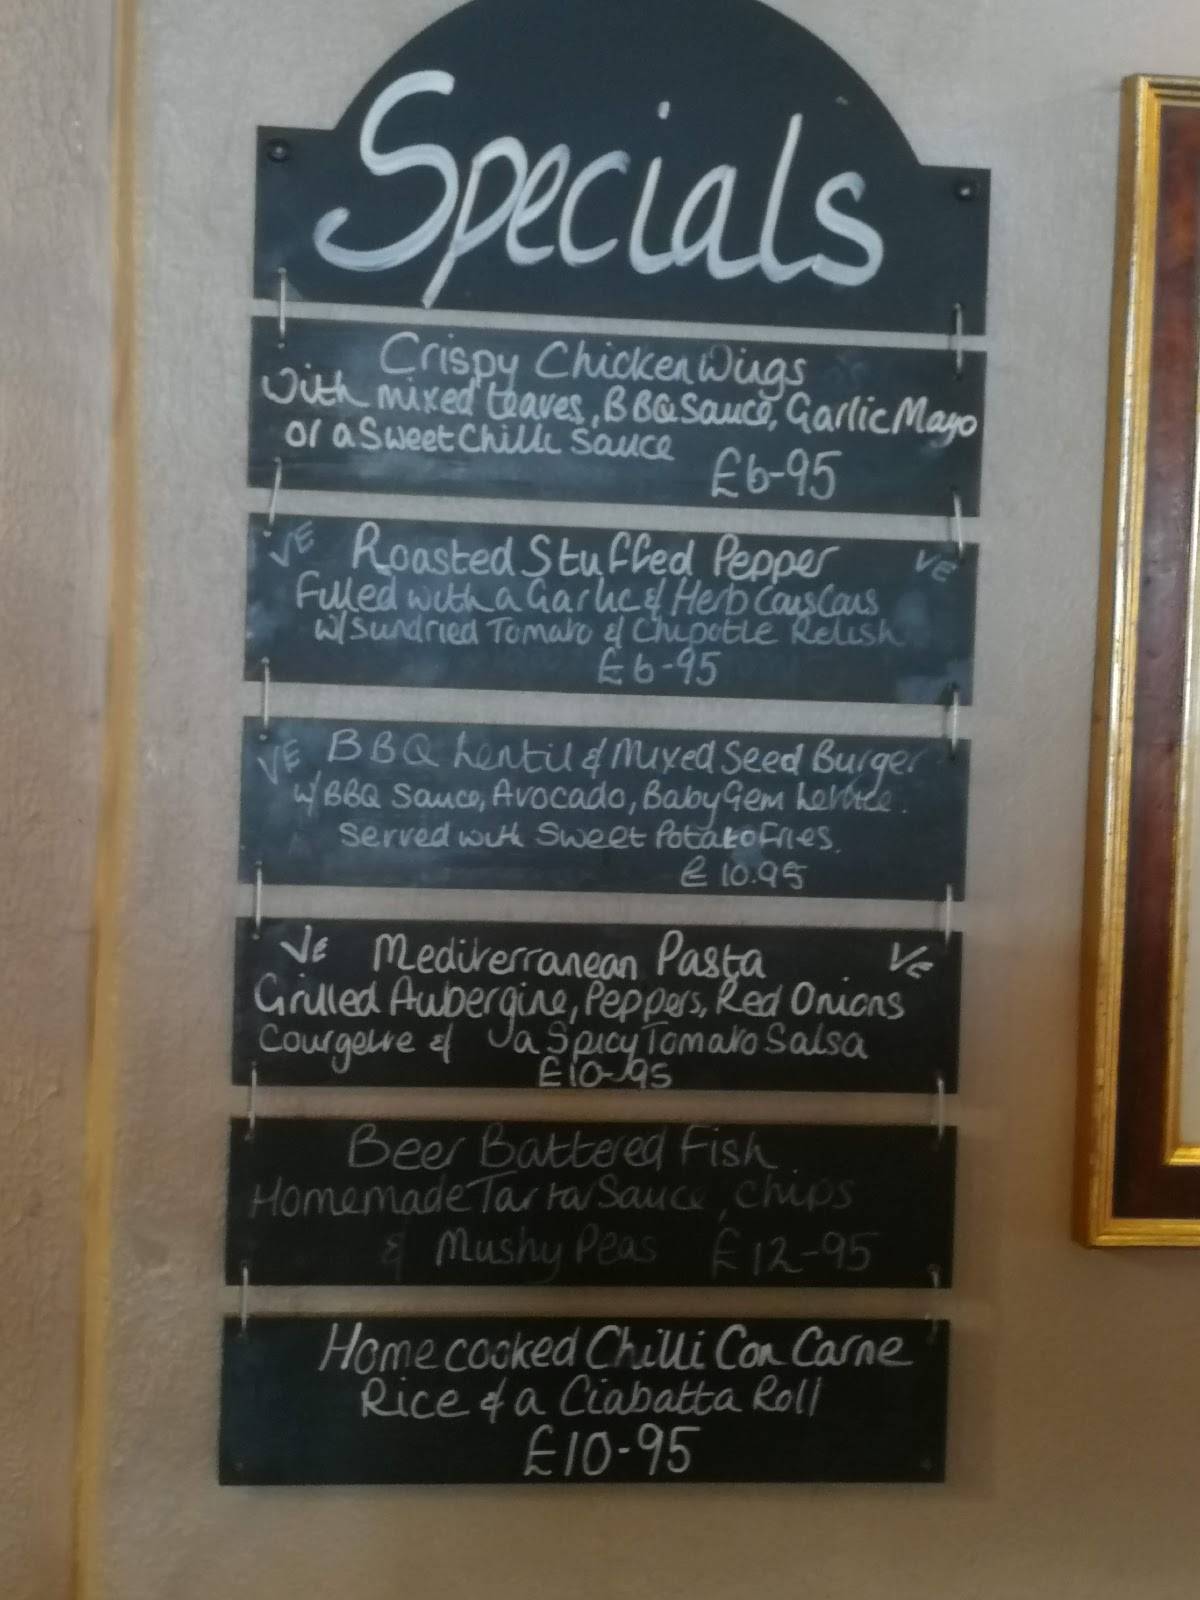 Specials
Crispy Chicken Wings
With mixed leaves, BBQ Sauce, Garlic Mayo
or a Sweet Chilli Sauce
£6-95
VE Roasted Stuffed Pepper VE
Filled with a Garlic & Herb CousCous
w/ Sundried Tomato & Chipotle Relish
£6-95
VE BBQ Lentil & Mixed Seed Burger
w/ BBQ Sauce, Avocado, Baby Gem Lettuce.
Served with Sweet Potato Fries.
£10.95
VE Mediterranean Pasta VE
Grilled Aubergine, Peppers, Red Onions
Courgette & a Spicy Tomato Salsa
£10-95
Beer Battered Fish
Homemade Tartar Sauce, chips
& Mushy Peas £12-95
Home cooked Chilli Con Carne
Rice & a Ciabatta Roll
£10-95